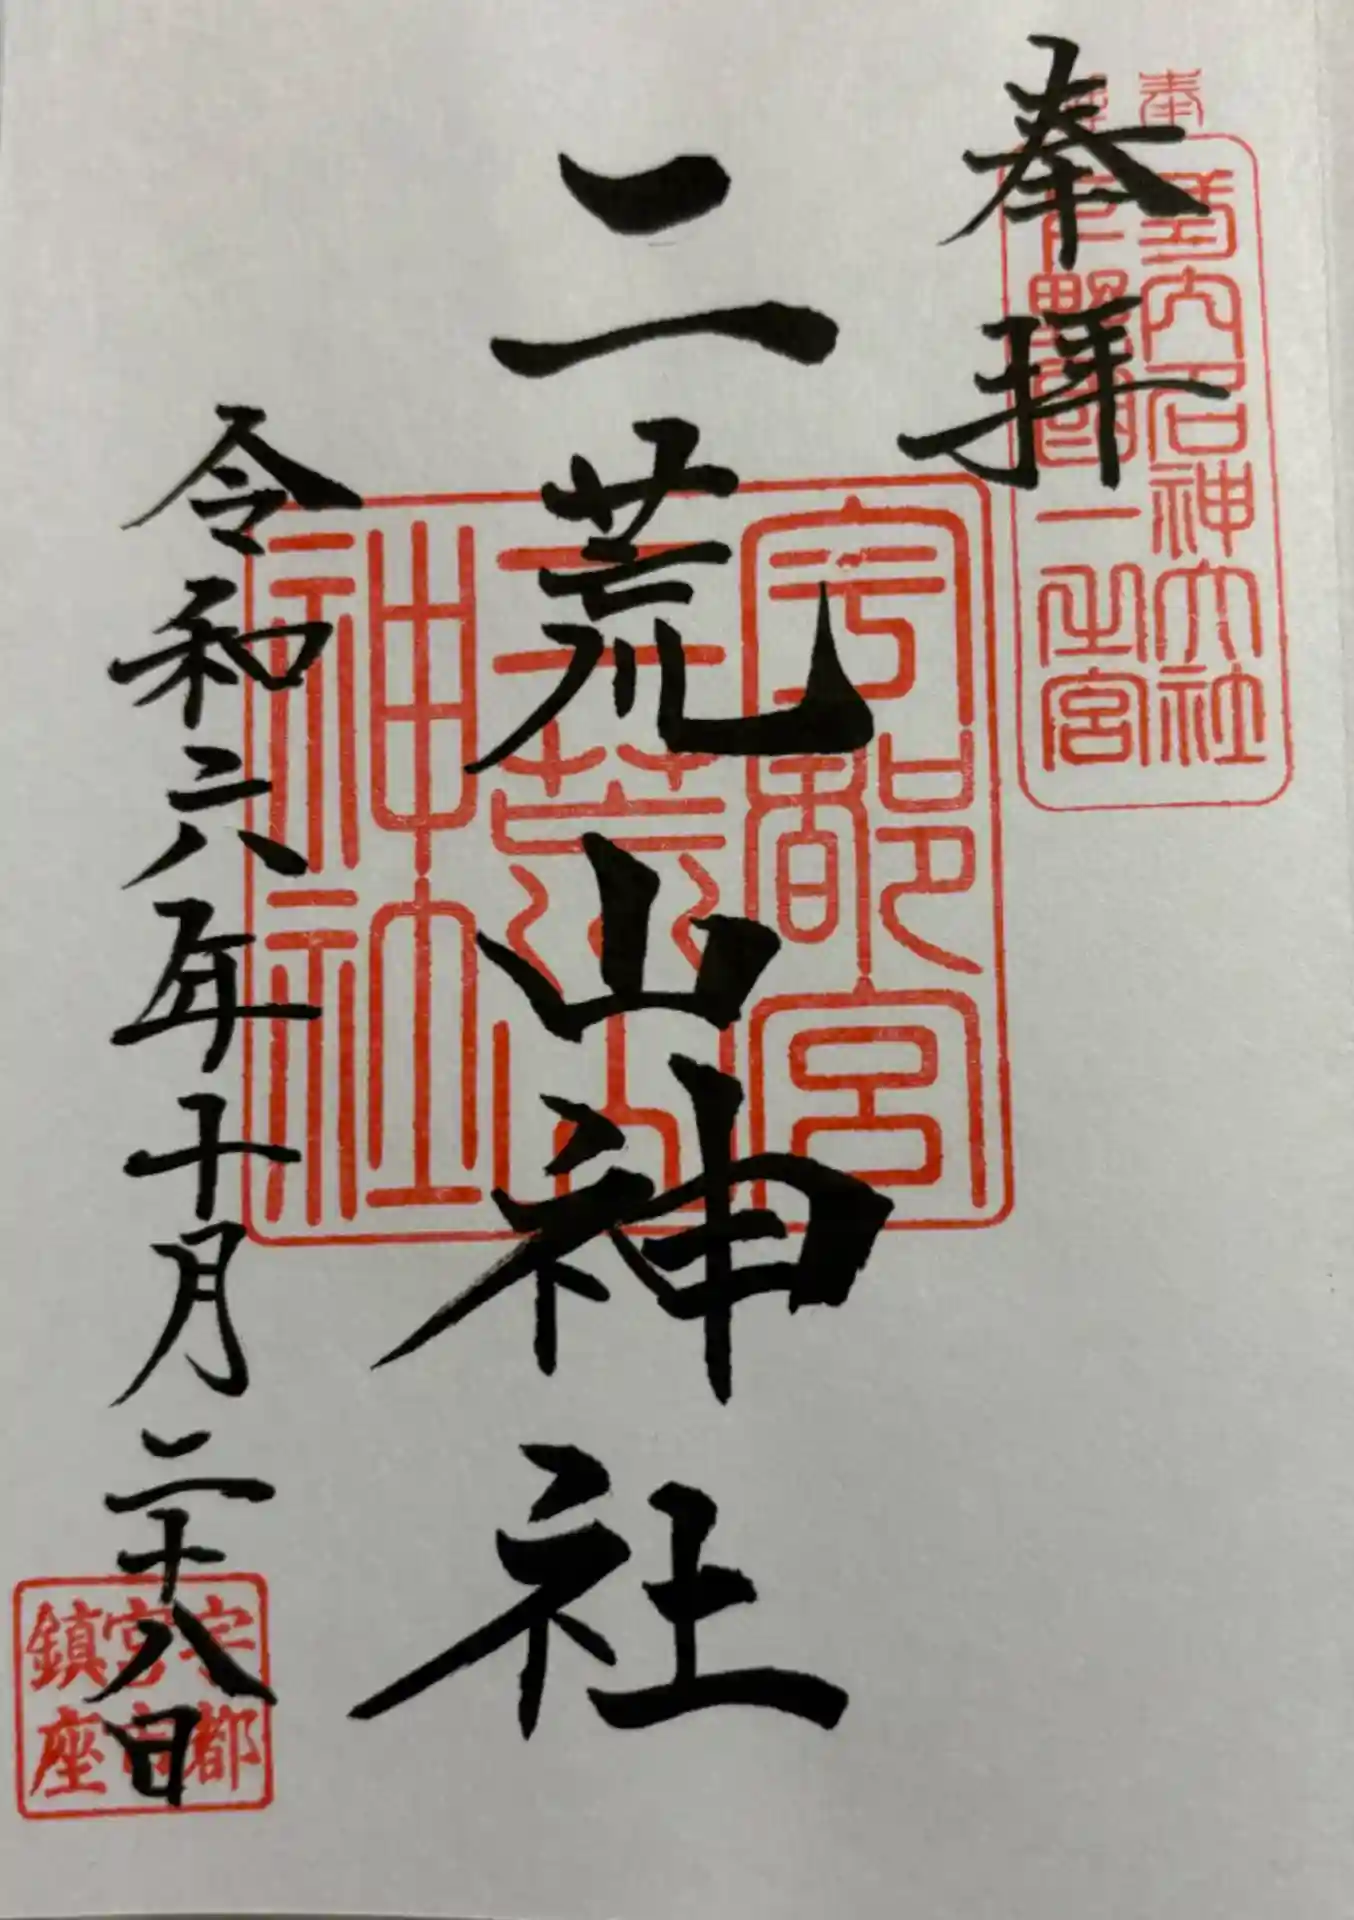 奉拝
延喜式内名神大社
下野國一之宮
二荒山神社
宇都宮
二荒山
神社
令和六年十月二十八日
宇都
宮市
鎮座